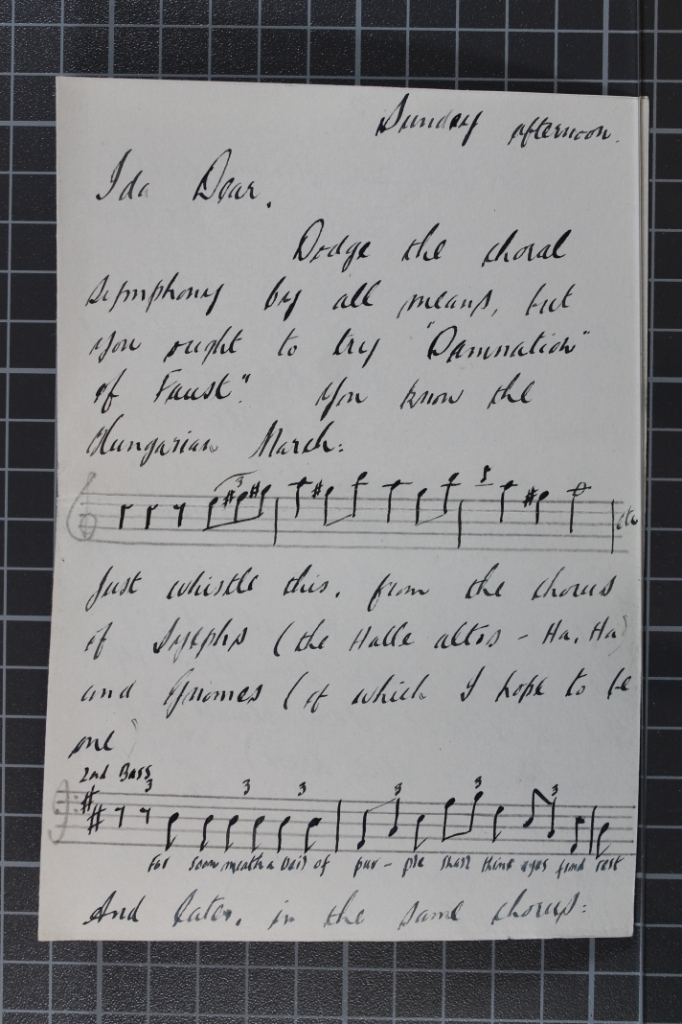 Sunday afternoon.
Ida Dear.
Dodge the choral
symphony by all means, but
you ought to try "Damnation"
of Faust". You know the
Hungarian March:
3
etc
Just whistle this, from the chorus
of Sylphs (the Halle altos - Ha, Ha)
and Gnomes (of which I hope to be
one)
2nd Bass
3 3 3 3 3
For soon 'neath a veil of pur - ple shall thine eyes find rest
And later, in the same chorus: